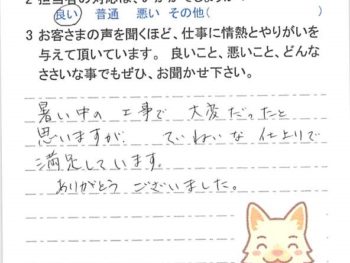 2 担当者の対応は、いかがでしたか?
良い 普通 悪い その他(
3 お客さまの声を聞くほど、仕事に情熱とやりがいを
与えて頂いています。良いこと、悪いこと、どんな
ささいな事でもぜひ、お聞かせ下さい。
暑い中の 工事で 大変だったと
思いますが ていねいな 仕上りで
満足しています。
ありがとう ございました。